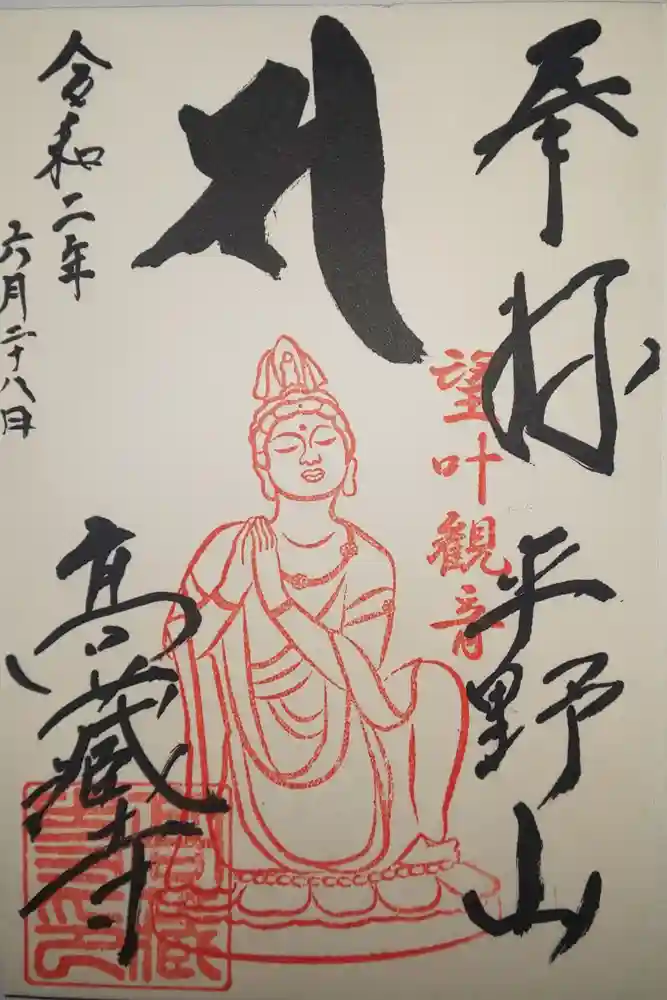 奉拝
平野山
望叶観音
高蔵寺
令和二年
六月二十八日